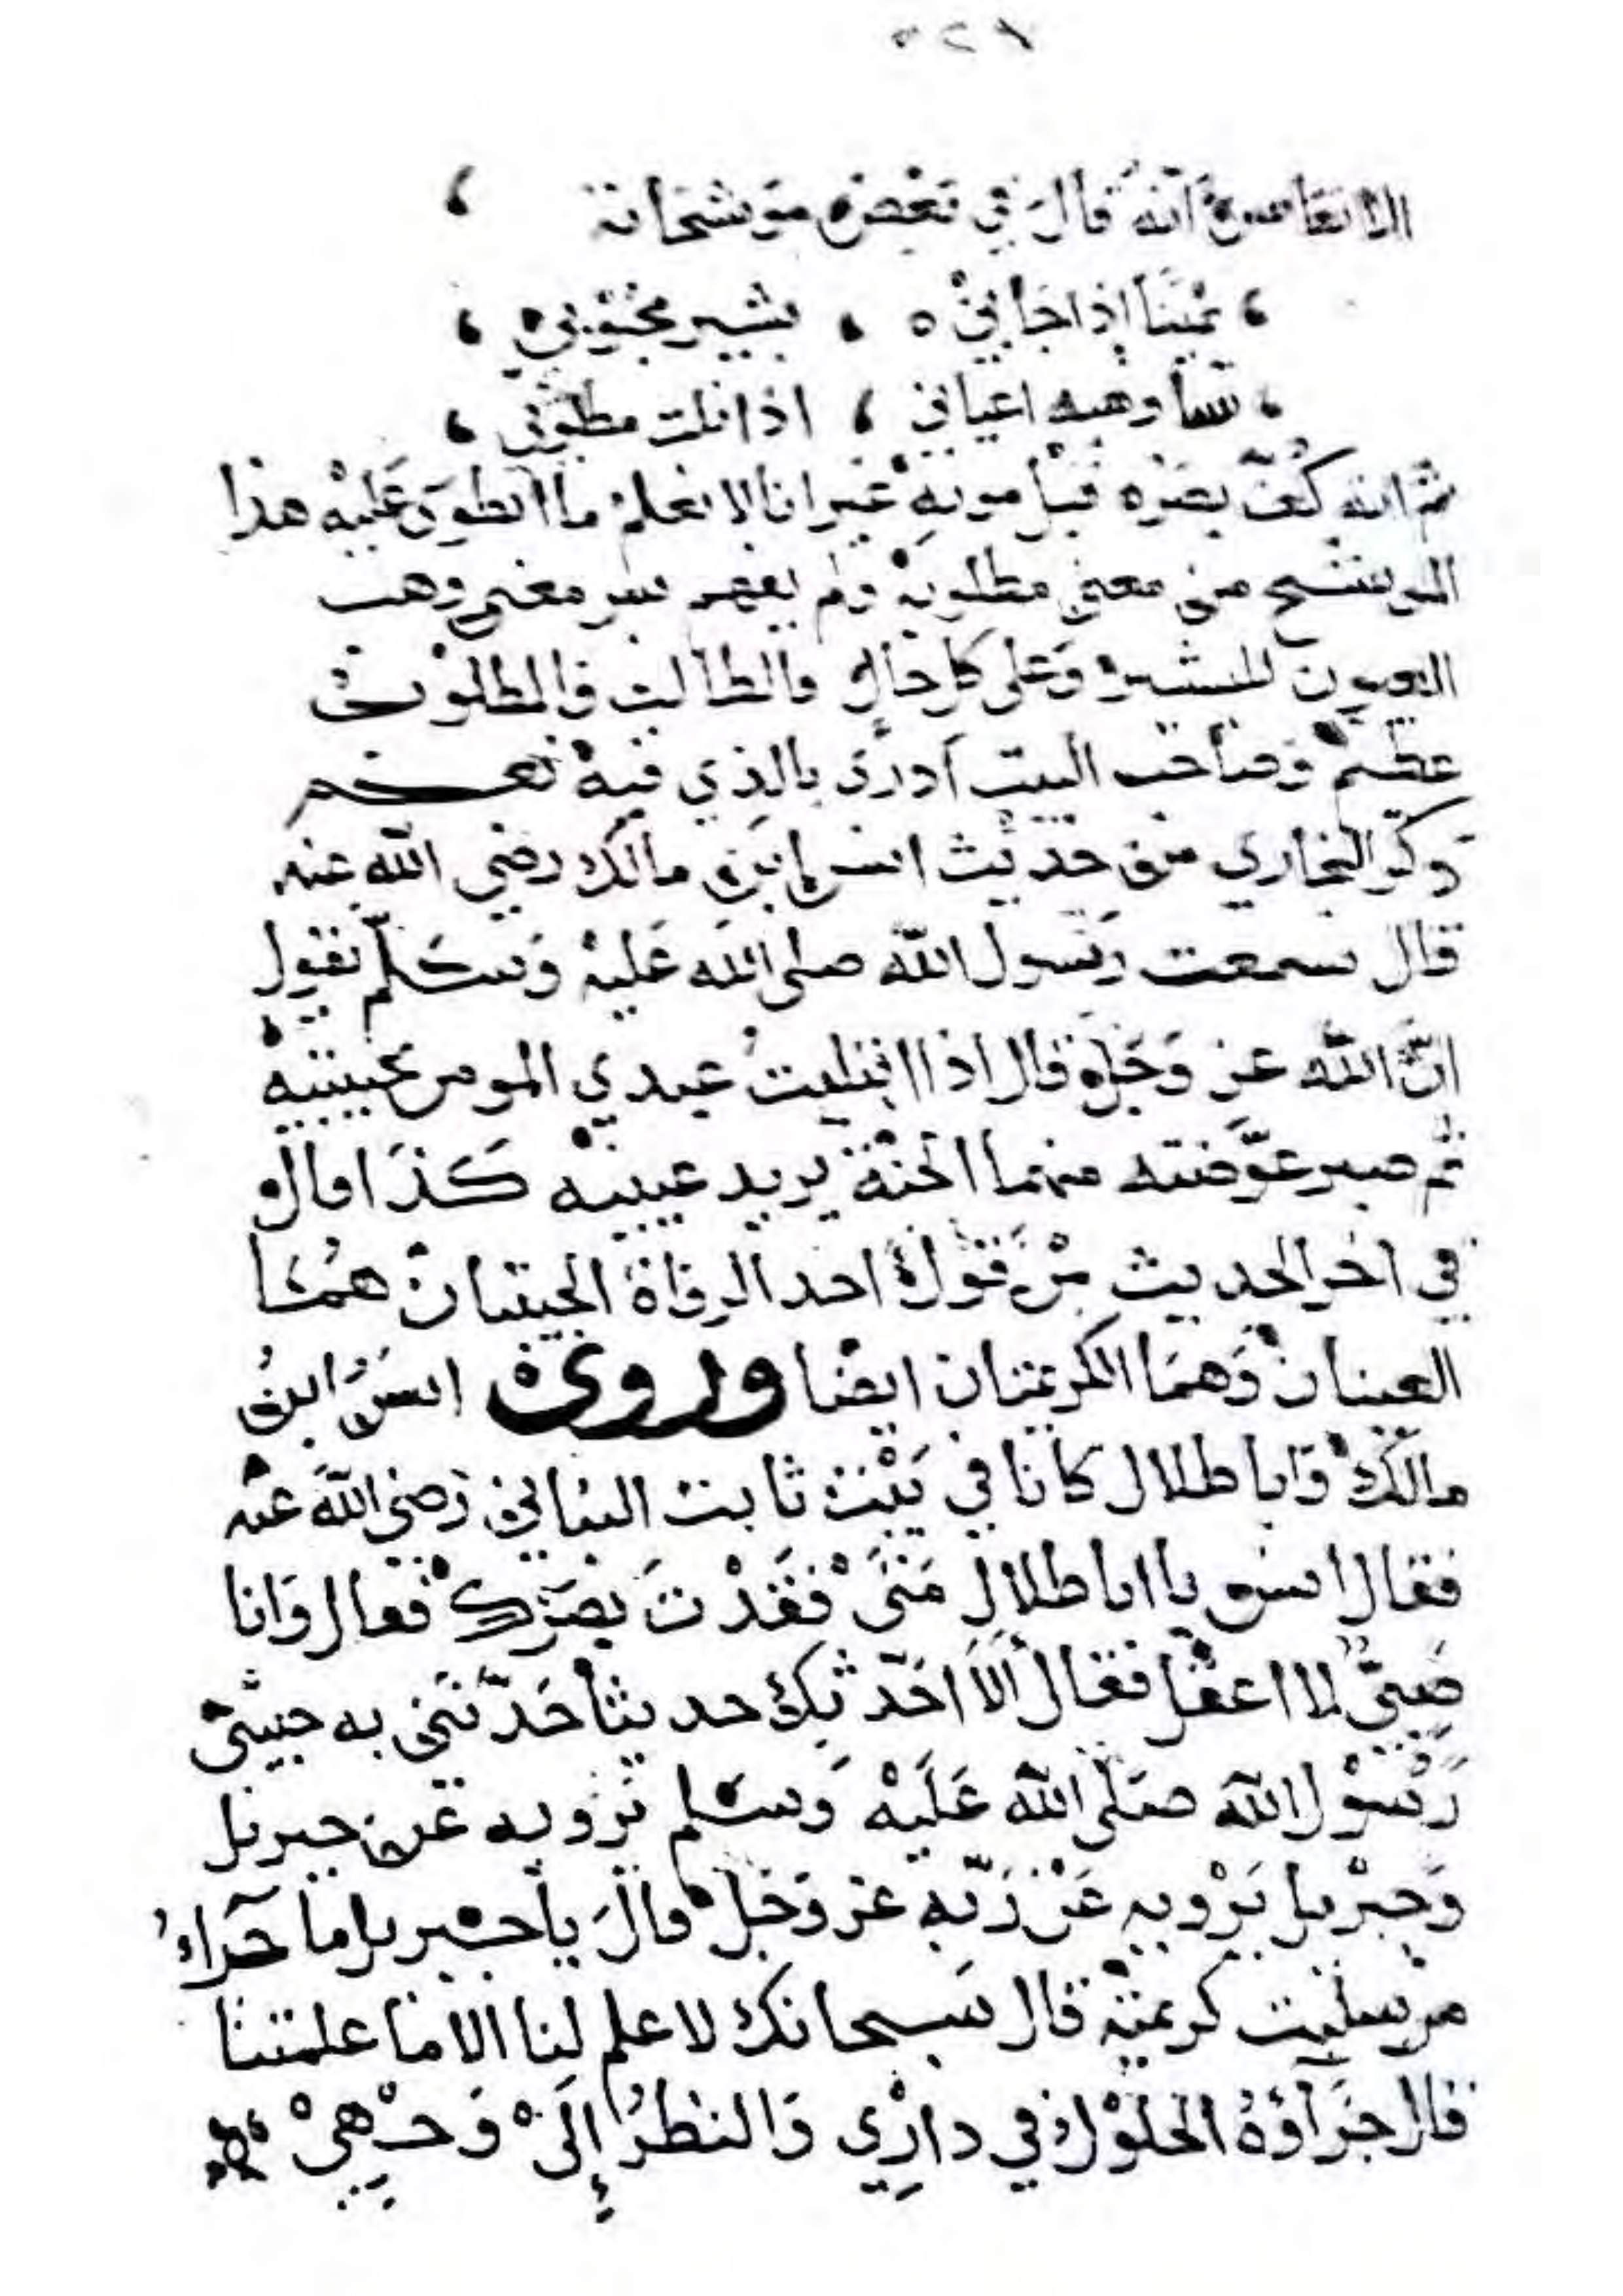 انه قال في بعض موشحاته
يمينا إذا جاني بشير محبوبي
اعياني اذا نلت مطلوبي
ثم انه كُفّ بصره قبل موته غير انا لا نعلم ما انطوى عليه هذا
من معنى مطلوبه ولم يفهم معنى وهب
العيون للبشير وعلى كل حال فالطالب والمطلوب
عظيم وصاحب البيت أدرى بالذي فيه نعم
ذكر البخاري من حديث انس ابن مالك رضي الله عنه
قال سمعت رسول الله صلى الله عليه وسلم يقول
انّ الله عز وجل قال اذا ابتليت عبدي المومن بحبيبتيه
ثم صبر عوّضته منهما الجنة يريد عينيه كذا قال
في اخر الحديث من قول احد الرواة الحبيبتان هما
العينان وهما الكريمتان ايضا وروى انس ابن
مالك وابا ظلال كانا في بيت ثابت البناني رضي الله عنه
فقال انس يا ابا ظلال متى فقدت بصرك فقال وانا
صبيّ لا اعقل فقال ألا احدّثك حديثا حدّثني به حبيبي
رسول الله صلى الله عليه وسلم يرويه عن جبريل
وجبريل يرويه عن ربّه عز وجل قال يا جبريل ما جزاء
من سلبت كريمتيه قال سبحانك لا علم لنا الا ما علمتنا
قال جزآؤه الحلول في داري والنظر إلى وجهي